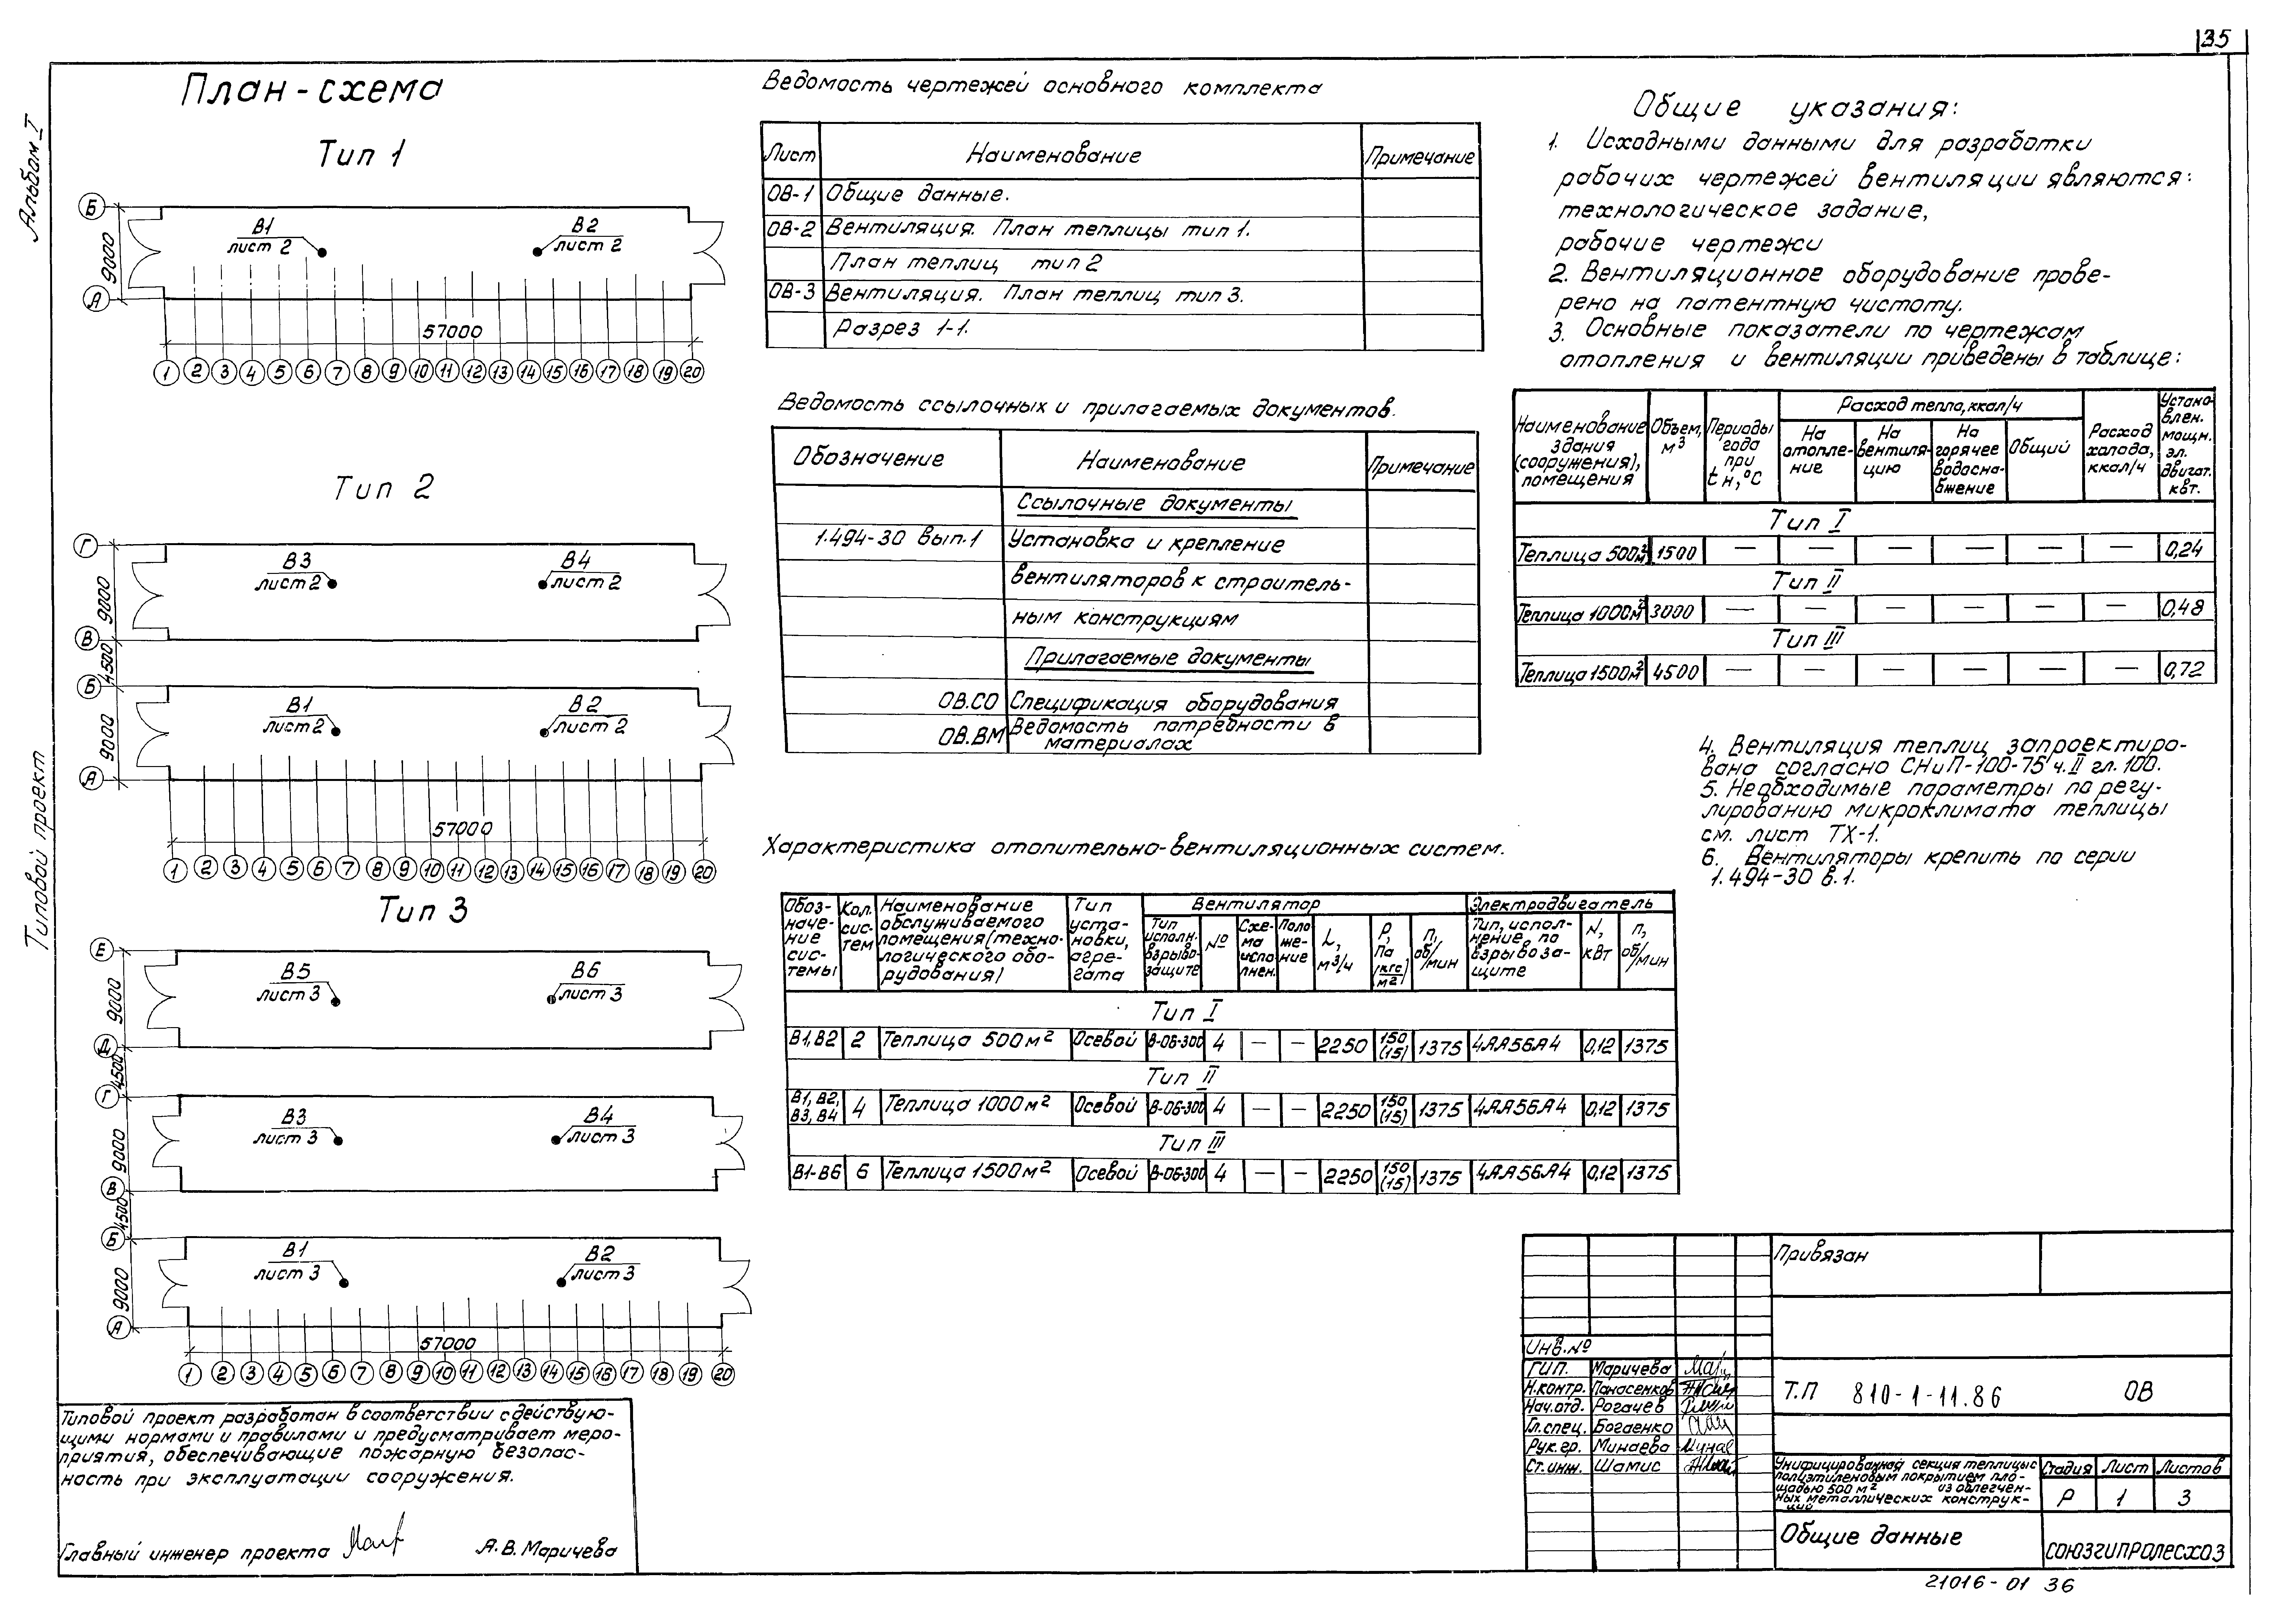 35
Альбом I
Типовой проект
План-схема
Тип 1
Б
А
9000
В1
лист 2
В2
лист 2
57000
1 2 3 4 5 6 7 8 9 10 11 12 13 14 15 16 17 18 19 20
Тип 2
Г
В
Б
А
9000
4500
9000
В3
лист 2
В4
лист 2
В1
лист 2
В2
лист 2
57000
1 2 3 4 5 6 7 8 9 10 11 12 13 14 15 16 17 18 19 20
Тип 3
Е
Д
Г
В
Б
А
9000
4500
9000
4500
9000
В5
лист 3
В6
лист 3
В3
лист 3
В4
лист 3
В1
лист 3
В2
лист 3
57000
1 2 3 4 5 6 7 8 9 10 11 12 13 14 15 16 17 18 19 20
Типовой проект разработан в соответствии с действую-
щими нормами и правилами и предусматривает меро-
приятия, обеспечивающие пожарную безопас-
ность при эксплуатации сооружения.
Главный инженер проекта А.В. Маричева
Ведомость чертежей основного комплекта
Лист Наименование Примечание
ОВ-1 Общие данные.
ОВ-2 Вентиляция. План теплицы тип 1.
План теплиц тип 2
ОВ-3 Вентиляция. План теплиц тип 3.
Разрез 1-1.
Ведомость ссылочных и прилагаемых документов.
Обозначение Наименование Примечание
Ссылочные документы
1.494-30 вып.1 Установка и крепление
вентиляторов к строитель-
ным конструкциям
Прилагаемые документы
ОВ.СО Спецификация оборудования
ОВ.ВМ Ведомость потребности в
материалах
Характеристика отопительно-вентиляционных систем.
Обоз-
наче-
ние
сис-
темы
Кол.
сис-
тем
Наименование
обслуживаемого
помещения (техно-
логического обо-
рудования)
Тип
уста-
новки,
агре-
гата
Вентилятор
Тип
исполн.
взрыво-
защите
№
Схе-
ма
испо
лнен.
Поло
же-
ние
L,
м³/ч
Р,
Па
(кгс/м²)
п,
об/мин
Электродвигатель
Тип, испол-
нение, по
взрывоза-
щите
N,
кВт
п,
об/мин
Тип I
В1,В2 2 Теплица 500м² Осевой В-06-300 4 — — 2250 150 (15) 1375 4АА56А4 0,12 1375
Тип II
В1, В2, В3, В4 4 Теплица 1000м² Осевой В-06-300 4 — — 2250 150 (15) 1375 4АА56А4 0,12 1375
Тип III
В1-В6 6 Теплица 1500м² Осевой В-06-300 4 — — 2250 150 (15) 1375 4АА56А4 0,12 1375
Общие указания:
1. Исходными данными для разработки
рабочих чертежей вентиляции являются:
технологическое задание,
рабочие чертежи
2. Вентиляционное оборудование прове-
рено на патентную чистоту.
3. Основные показатели по чертежам
отопления и вентиляции приведены в таблице:
Наименование
здания
(сооружения),
помещения
Объем,
м³
Периоды
года
при
tн,°С
Расход тепла, ккал/ч
На
отопле-
ние
На
вентиля-
цию
На
горячее
водосна-
бжение
Общий
Расход
холода,
ккал/ч
Устано-
влен.
мощн.
эл.
двигат.
квт.
Тип I
Теплица 500м² 1500 — — — — — — 0,24
Тип II
Теплица 1000м² 3000 — — — — — — 0,48
Тип III
Теплица 1500м² 4500 — — — — — — 0,72
4. Вентиляция теплиц запроектиро-
вана согласно СНиП-100-75 ч.II гл.100.
5. Необходимые параметры по регу-
лированию микроклимата теплицы
см. лист ТХ-1.
6. Вентиляторы крепить по серии
1.494-30 в.1.
Привязан
Инв.№
ГИП. Маричева
Н.контр. Панасенков
Нач.отд. Рогачев
Гл.спец. Богаенко
Рук.гр. Минаева
Ст.инж. Шамис
Т.П 810-1-11.86 ОВ
Унифицированная секция теплицы с
полиэтиленовым покрытием пло-
щадью 500 м² из облегчен-
ных металлических конструк-
ций
Стадия Лист Листов
Р 1 3
Общие данные
СОЮЗГИПРОЛЕСХОЗ
21016-01 36